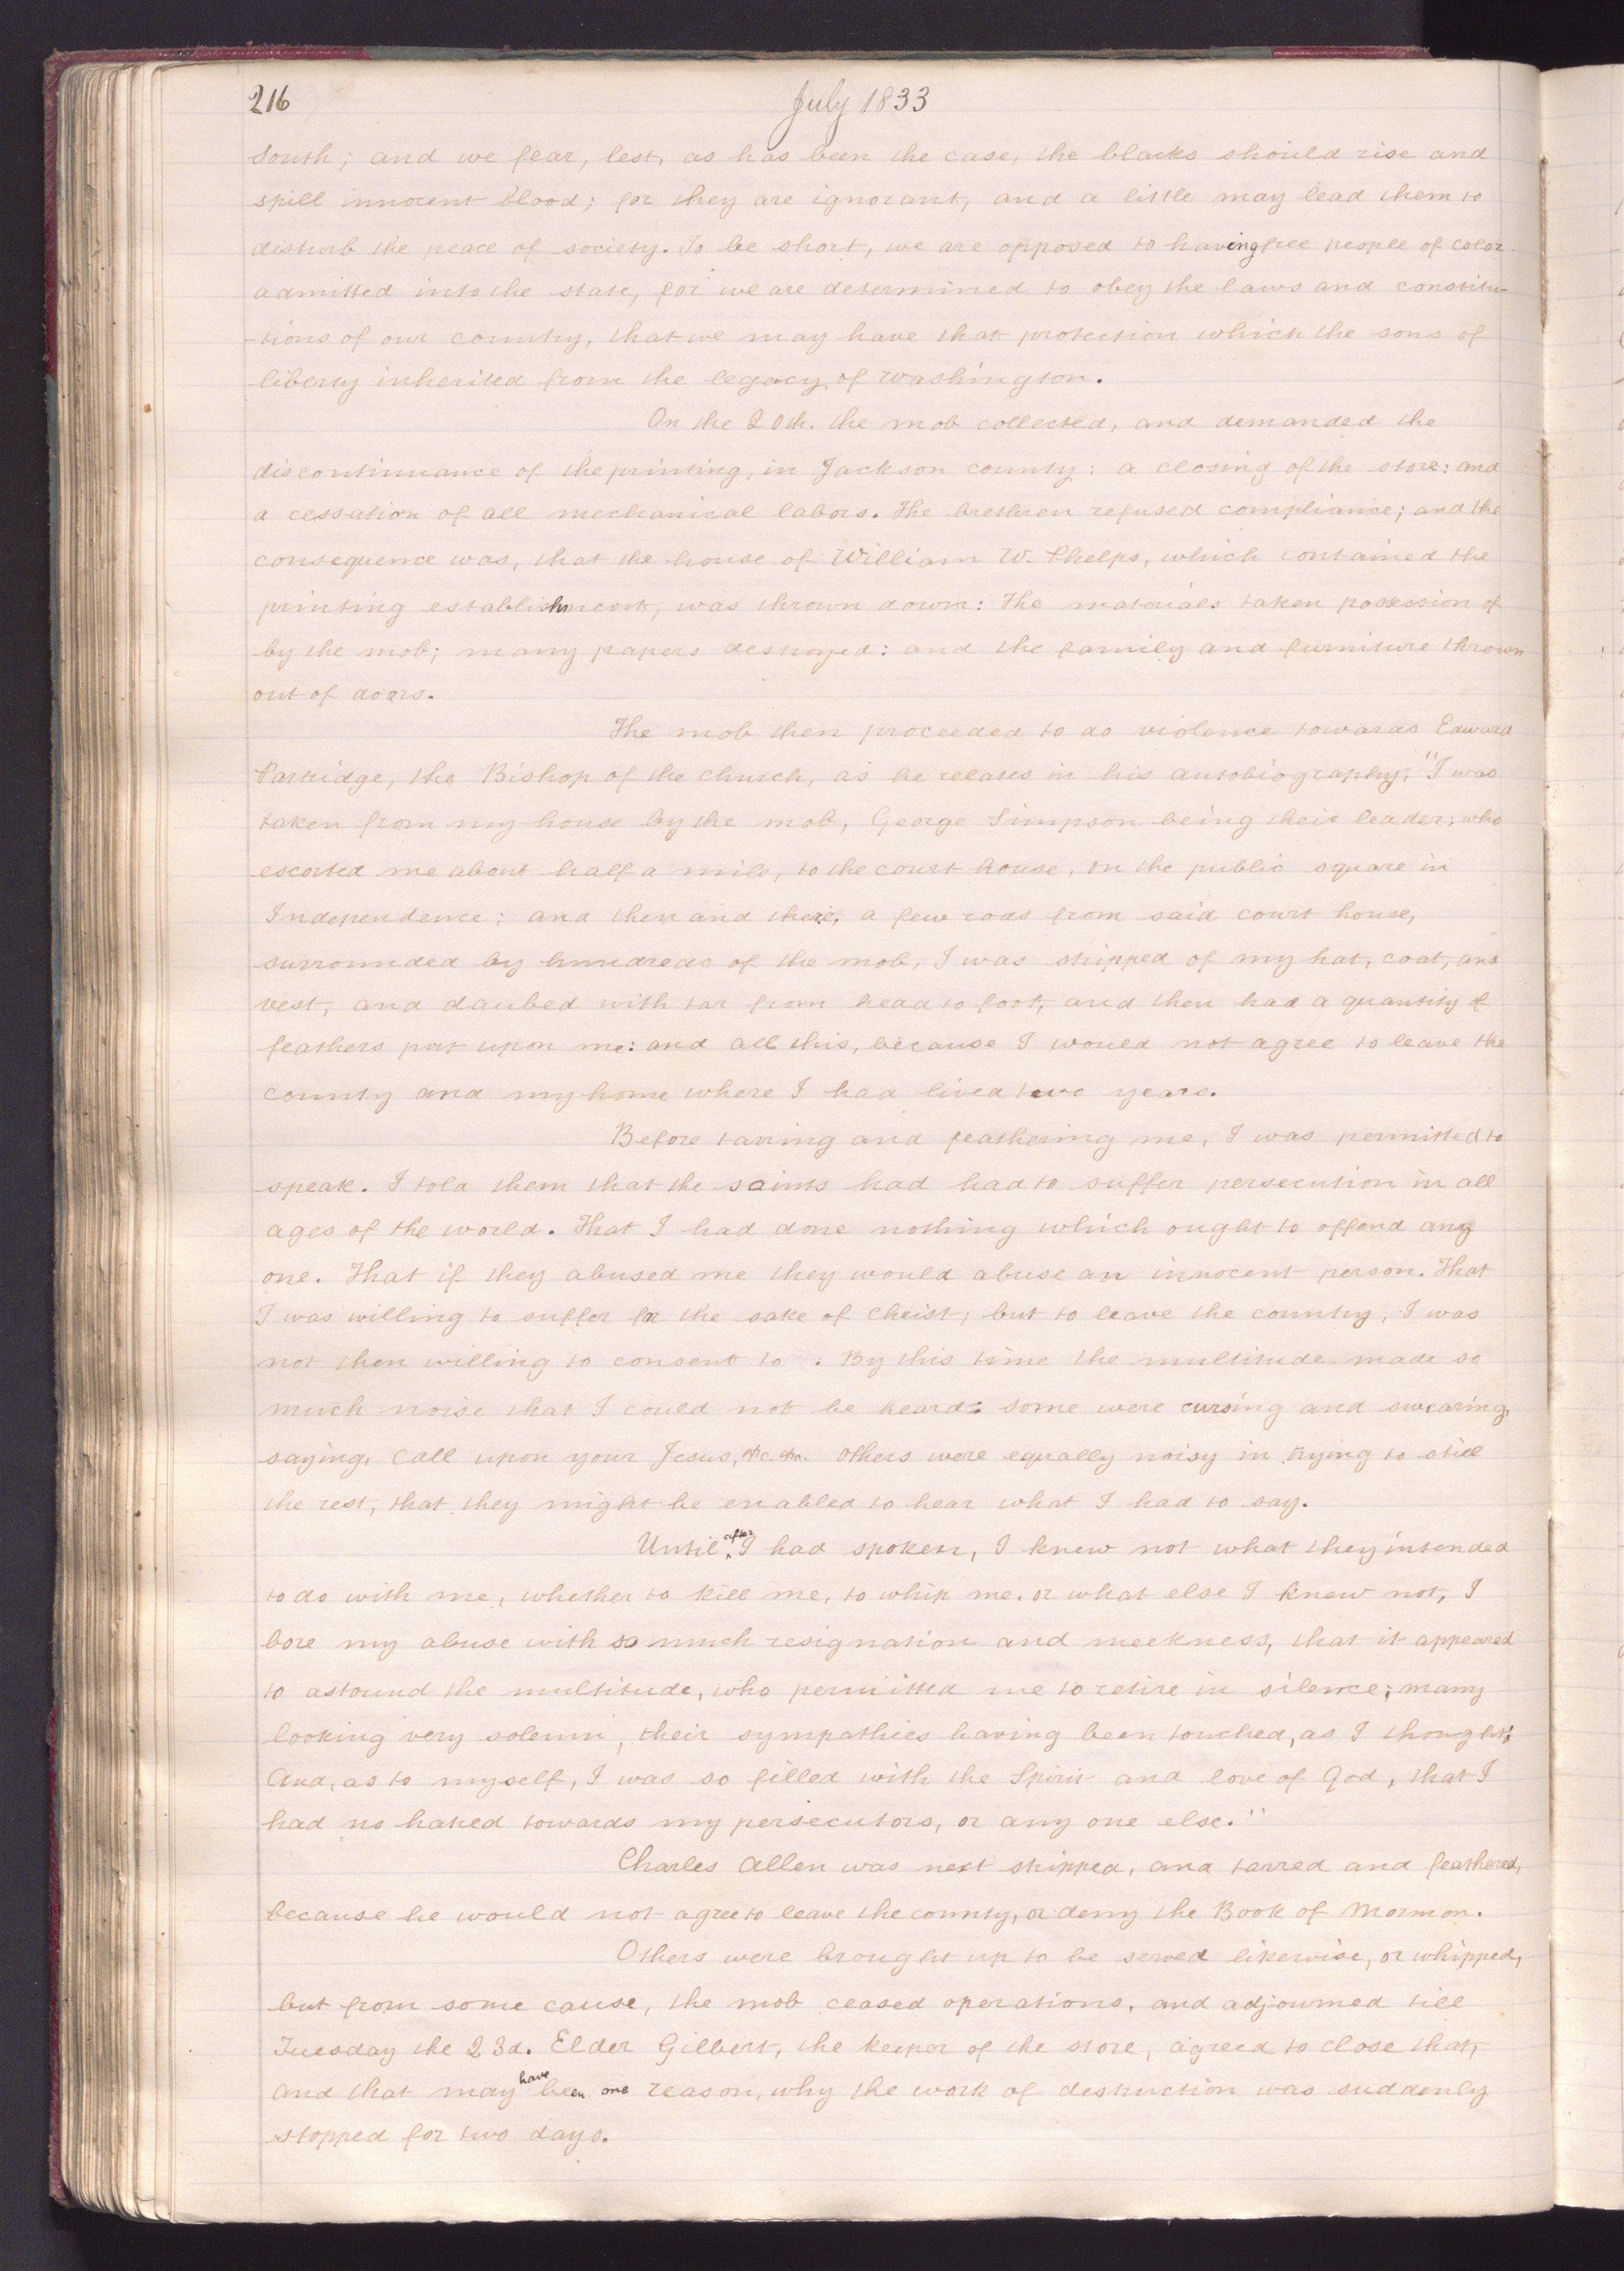 216 July 1833
South; and we fear, lest, as has been the case, the blacks should rise and
spill innocent blood; for they are ignorant, and a little may lead them to
disturb the peace of society. To be short, we are opposed to having free people of color
admitted into the state, for we are determined to obey the laws and constitu-
-tions of our country, that we may have that protection which the sons of
liberty inherited from the legacy of Washington.
On the 20th. the mob collected, and demanded the
discontinuance of the printing, in Jackson county: a closing of the store: and
a cessation of all mechanical labors. The brethren refused compliance; and the
consequence was, that the house of William W. Phelps, which contained the
printing establishment, was thrown down: The materials taken possession of
by the mob; many papers destroyed: and the family and furniture thrown
out of doors.
The mob then proceeded to do violence towards Edward
Partridge, the Bishop of the church, as he relates in his autobiography; "I was
taken from my house by the mob, George Simpson being their leader; who
escorted me about half a mile, to the court house, on the public square in
Independence; and then and there, a few rods from said court house,
surrounded by hundreds of the mob, I was stripped of my hat, coat, and
vest, and daubed with tar from head to foot, and then had a quantity of
feathers put upon me: and all this, because I would not agree to leave the
county and my home where I had lived two years.
Before tarring and feathering me, I was permitted to
speak. I told them that the saints had had to suffer persecution in all
ages of the world. That I had done nothing which ought to offend any
one. That if they abused me they would abuse an innocent person. That
I was willing to suffer for the sake of Christ; but to leave the country, I was
not then willing to consent to. By this time the multitude made so
much noise that I could not be heard: some were cursing and swearing,
saying, call upon your Jesus, &c. &c. others were equally noisy in trying to still
the rest, that they might be enabled to hear what I had to say.
Until after I had spoken, I knew not what they intended
to do with me, whether to kill me, to whip me, or what else I knew not, I
bore my abuse with so much resignation and meekness, that it appeared
to astound the multitude, who permitted me to retire in silence; many
looking very solemn, their sympathies having been touched, as I thought;
And, as to myself, I was so filled with the Spirit and love of God, that I
had no hatred towards my persecutors, or any one else."
Charles Allen was next stripped, and tarred and feathered,
because he would not agree to leave the county, or deny the Book of Mormon.
Others were brought up to be served likewise, or whipped,
but from some cause, the mob ceased operations, and adjourned till
Tuesday the 23d. Elder Gilbert, the keeper of the store, agreed to close that,
and that may have been one reason, why the work of destruction was suddenly
stopped for two days.